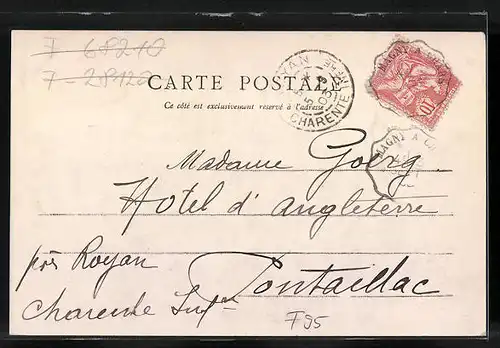 7 68210
7 28120
CARTE POSTALE
Ce côté est exclusivement réservé à l'adresse.
ROYAN
CHARENTE INFRE
Madame Goerg
Hotel d'Angleterre
près Royan Pontaillac
Charente Inf
F95